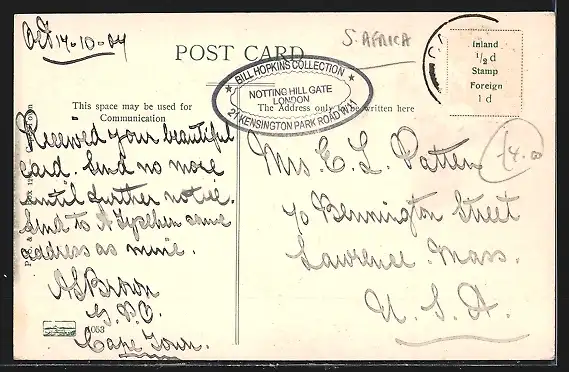 Oct 14-10-04
S. AFRICA
POST CARD
BILL HOPKINS COLLECTION
NOTTING HILL GATE
LONDON
21 KENSINGTON PARK ROAD W.11
Inland
½ d
Stamp
Foreign
1 d
This space may be used for
Communication
The Address only to be written here
Received your beautiful
card. Send no more
until further notice.
Send to A Tyzehen same
address as mine.
A S Brown
G. P. O.
Cape Town.
Mrs. E. L. Patten
70 Bennington Street
Lawrence. Mass.
U. S. A.
£4.00
1053